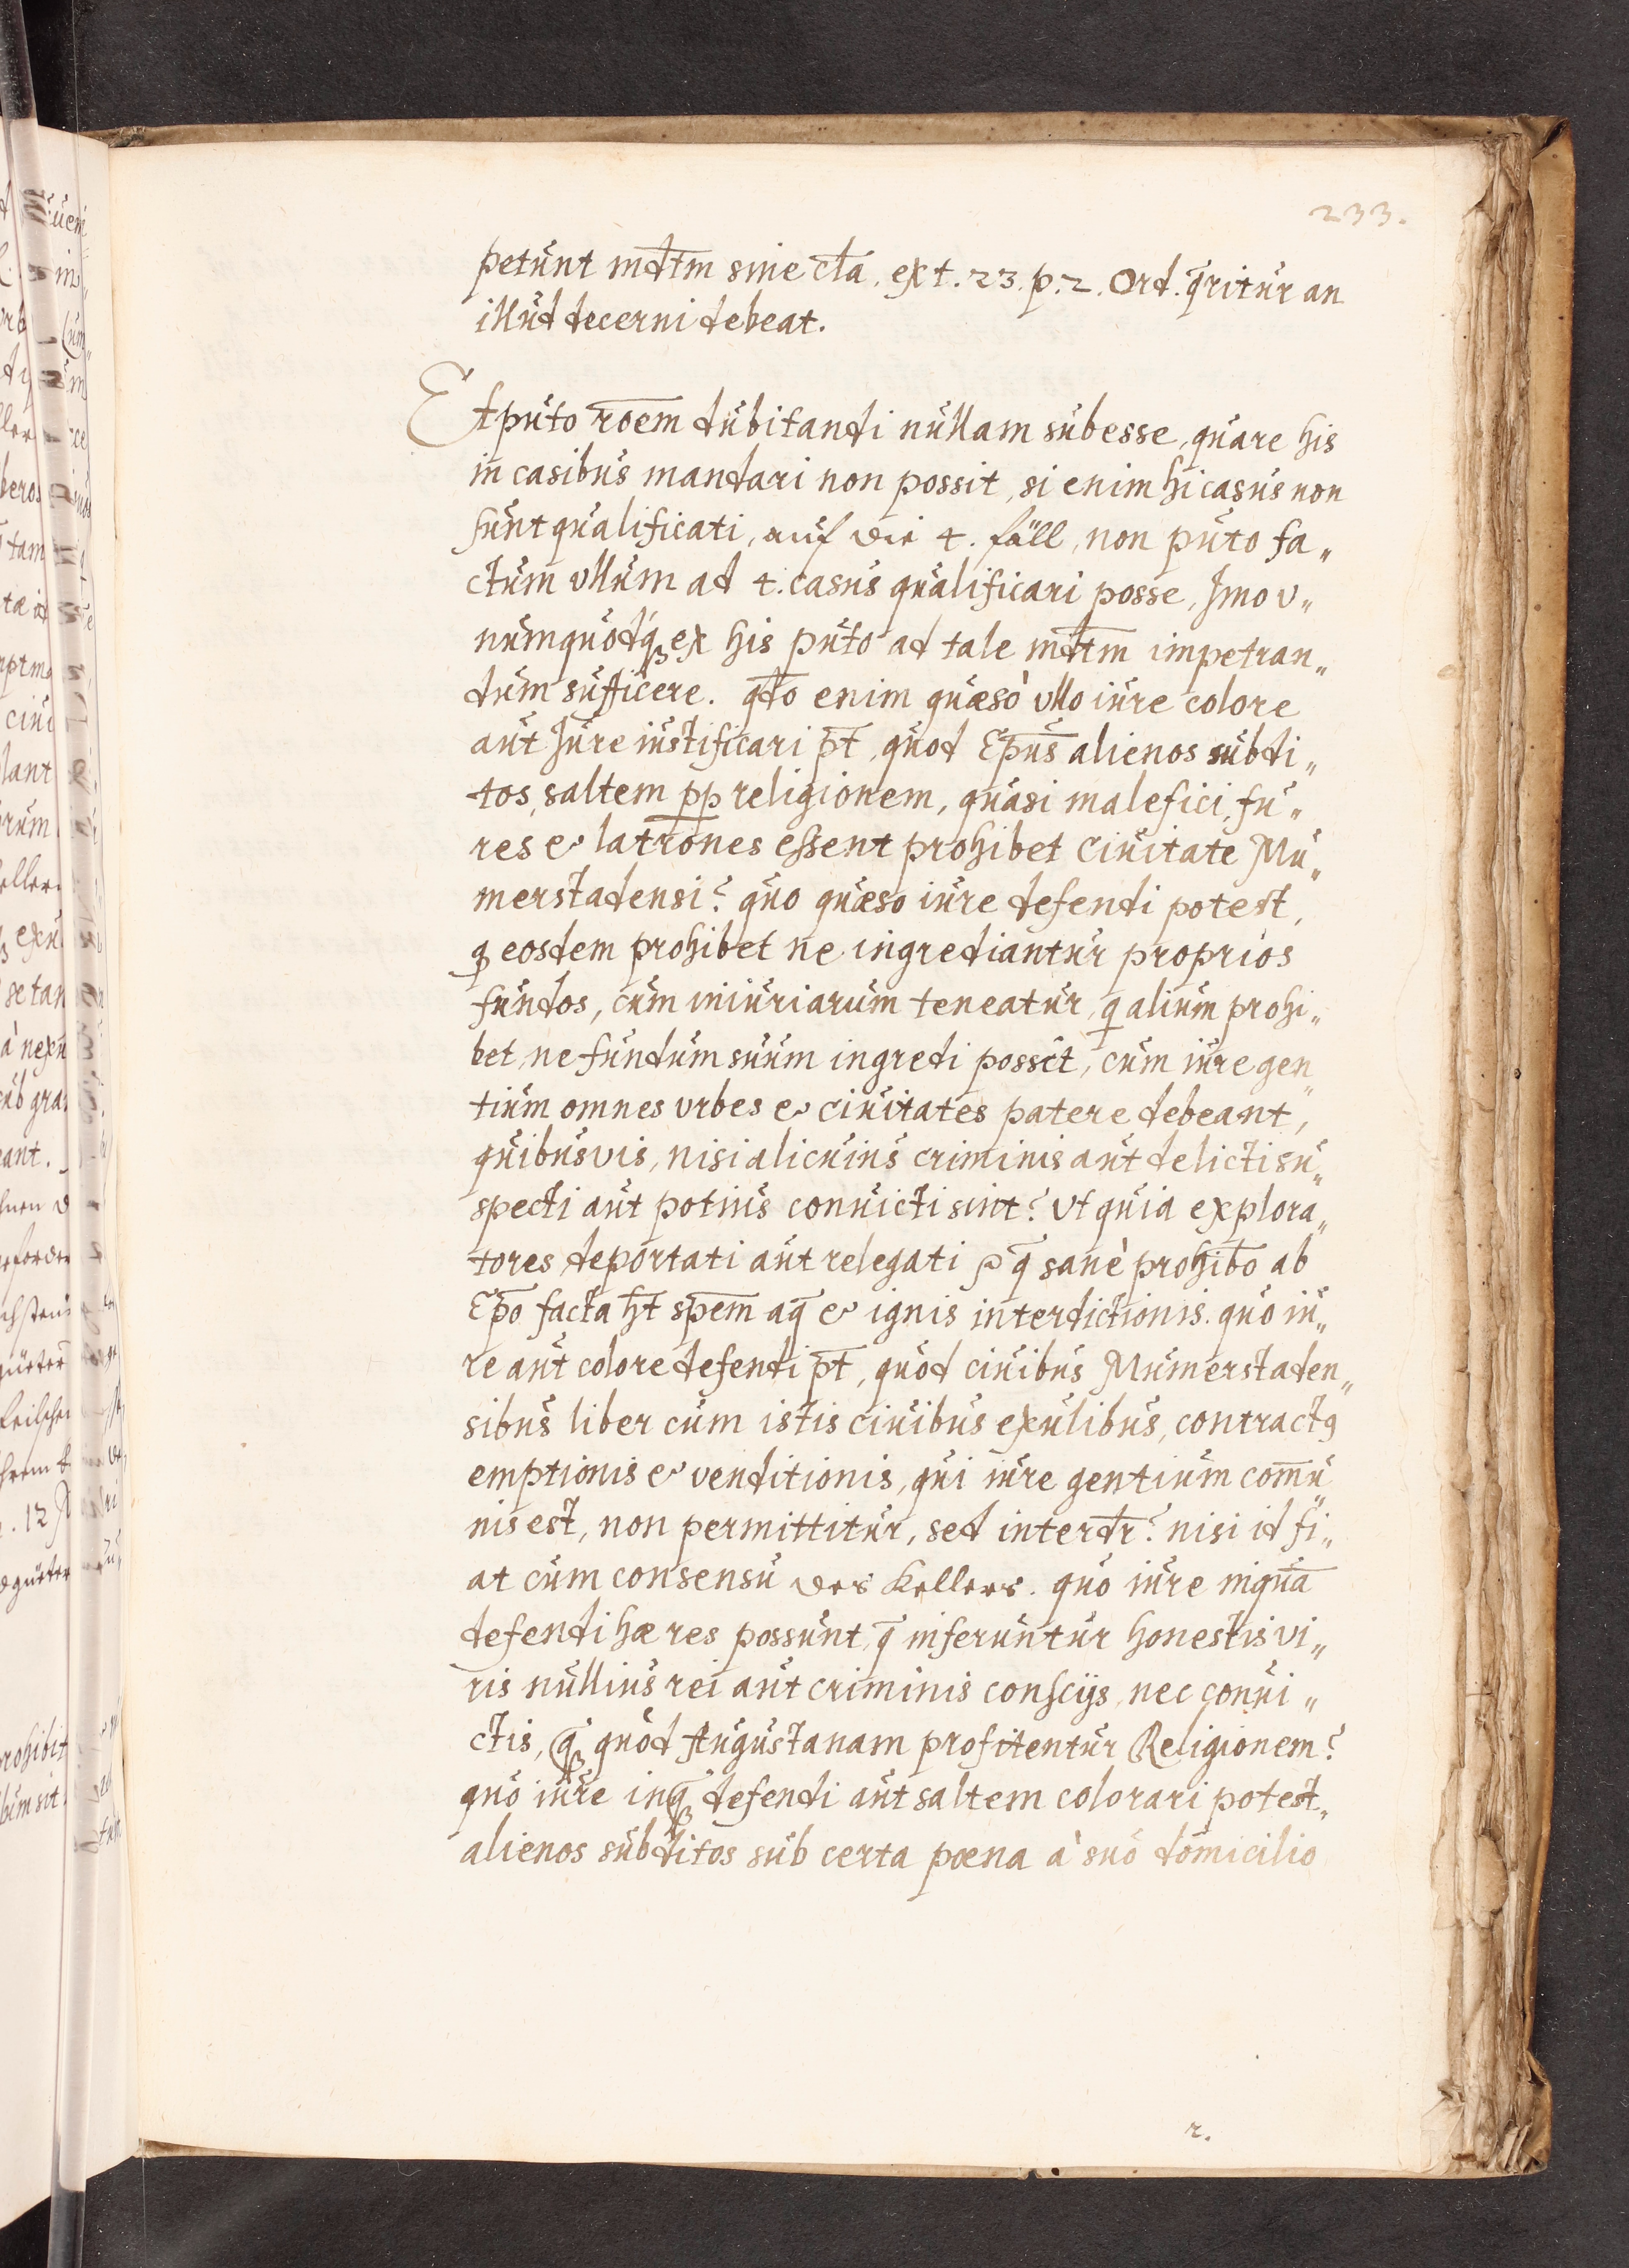 233.
petunt mdtm sine cla. ex t. 23. p. 2. Ord. q̄ritur an
illud decerni debeat.
Et puto rōem dubitandi nullam subesse, quare his
in casibus mandari non possit, si enim hi casus non
sunt qualificati, auf die 4. fäll, non puto fa„
ctum vllum ad 4. casus qualificari posse, Imo v„
numquodq́ ex his puto ad tale mdtm impetran„
dum sufficere. qdo enim quæso vllo iure colore
aut Jure iustificari pt̄, quod Ep̄us alienos subdi„
tos, saltem pp religionem, quasi malefici, fu„
res & latrones essent prohibet ciuitate Mu„
merstadensi? quo quæso iure defendi potest,
q eosdem prohibet ne ingrediantur proprios
fundos, cum iniuriarum teneatur, q alium prohi„
bet, ne fundum suum ingredi possit, cum iure gen„
tium omnes vrbes & ciuitates patere debeant,
quibusvis, nisi alicuius criminis aut delicti su„
specti aut potius conuicti sint? Vt quia explora„
tores deportati aut relegati q̄ sanè prohibo ab
Ep̄o facta ht̄ spem aq̄ & ignis interdictionis. quo iu„
re aut colore defendi pt̄, quod ciuibus Mumerstaden„
sibus liber cum istis ciuibus exulibus, contractꝰ
emptionis & venditionis, qui iure gentium com̄u
nis est, non permittitur, sed interdr̄? nisi id fi„
at cum consensu des Kellers. quo iure inquā
defendi hæ res possunt, q̄ inferuntur honestis vi„
ris nullius rei aut criminis conscijs, nec conui„
ctis, q̄ quod Augustanam profitentur Religionem?
quo iure inq̄ defendi aut saltem colorari potest„
alienos subditos sub certa poena à suo domicilio
r.